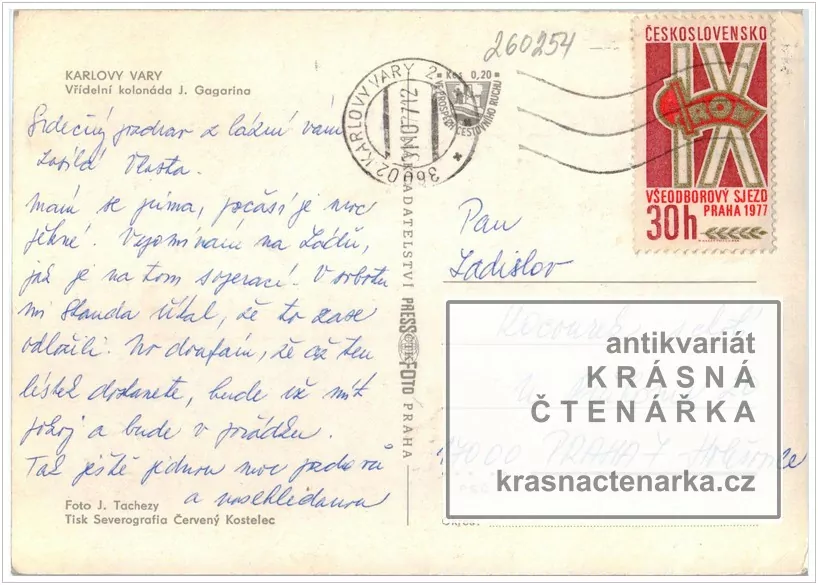 260254
KARLOVY VARY
Vřídelní kolonáda J. Gagarina
Srdečný pozdrav z lázní vám
Vlasta.
mám se prima, počasí je moc
pěkné. Vzpomínám na
jak je na tom s operací. V sobotu
mi Standa říkal, že to zase
odložili. No doufám, že až ten
lístek dostanete, bude už mít
pokoj a bude v pořádku.
Tak ještě jednou moc pozdravů
a nashledanou
Foto J. Tachezy
Tisk Severografia Červený Kostelec
NAKLADATELSTVÍ PRESSFOTO PRAHA
ČTK
360 02 KARLOVY VARY 2
Kčs 0,20
VE PROSPĚCH CESTOVNÍHO RUCHU
ČESKOSLOVENSKO
IX
ROH
VŠEODBOROVÝ SJEZD
PRAHA 1977
30h
Pan
Ladislav
17000 PRAHA 7
antikvariát
KRÁSNÁ
ČTENÁŘKA
krasnactenarka.cz